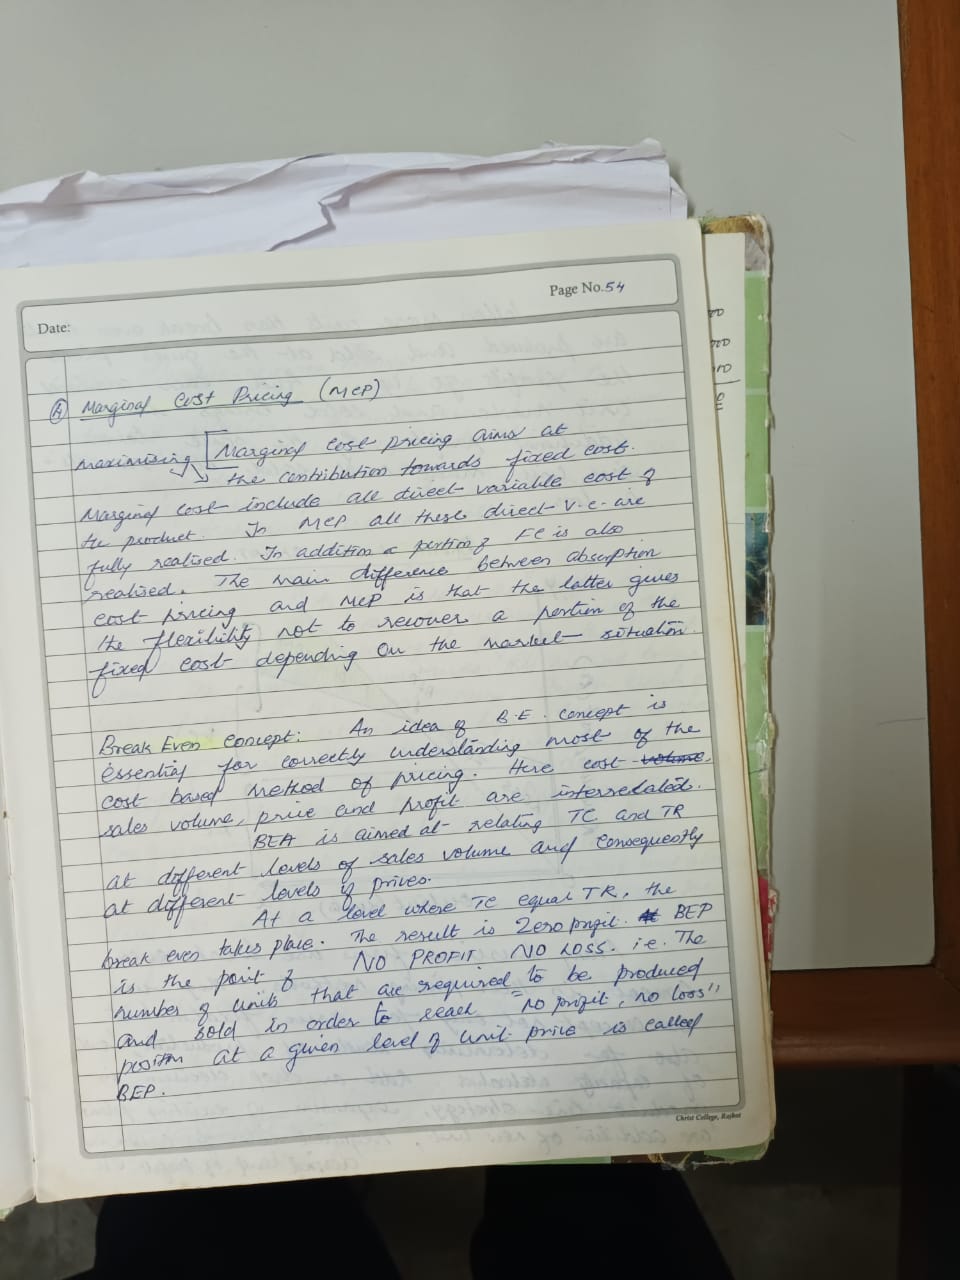 Page No. 54
Date:
(A) Marginal Cost Pricing (MCP)
maximising [Marginal cost pricing aims at
the contribution towards fixed cost.
Marginal cost include all direct variable cost of
the product. In MCP all these direct V.C. are
fully realised. In addition a portion of FC is also
realised. The main difference between absorption
cost pricing and MCP is that the latter gives
the flexibility not to recover a portion of the
fixed cost depending on the market situation.
Break Even Concept: An idea of B.E. concept is
essential for correctly understanding most of the
cost based method of pricing. Here cost volume,
sales volume, price and profit are interrelated.
BEA is aimed at relating TC and TR
at different levels of sales volume and consequently
at different levels of prices.
At a level where TC equal TR, the
break even takes place. The result is Zero profit. BEP
is the point of NO PROFIT NO LOSS. i.e. The
number of units that are required to be produced
and sold in order to reach "no profit, no loss"
position at a given level of unit price is called
BEP.
Christ College, Rajkot